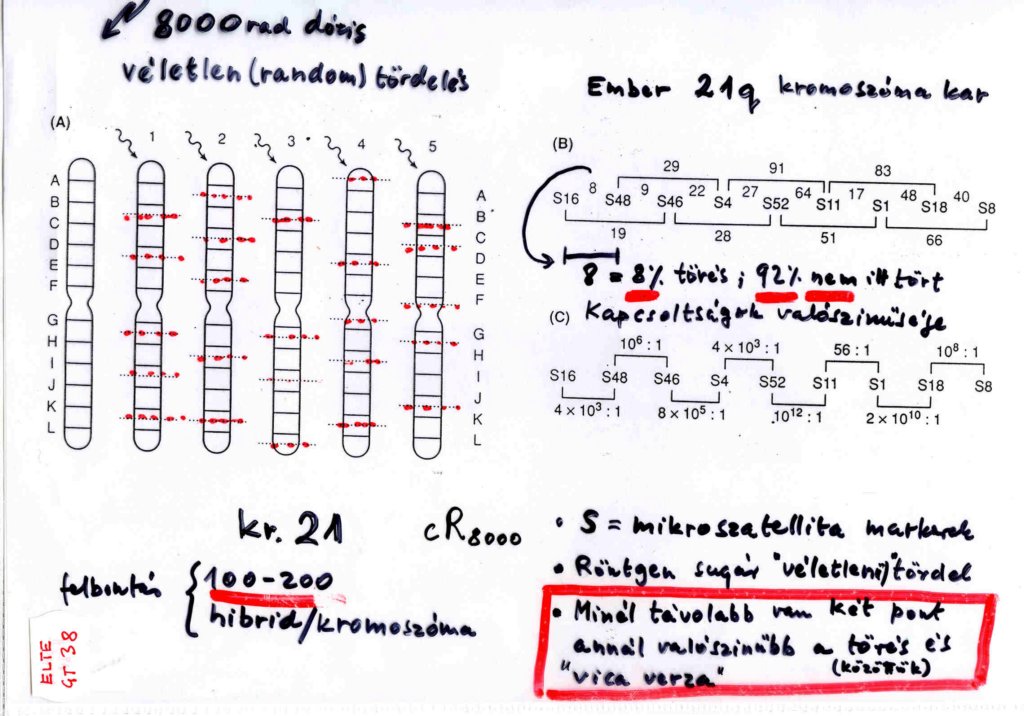 8000 rad dózis
véletlen (random) tördelés
Ember 21q kromoszóma kar
(A)
1 2 3 4 5
A
B
C
D
E
F
G
H
I
J
K
L
A
B
C
D
E
F
G
H
I
J
K
L
(B)
29 91 83
8 9 22 27 64 17 48 40
S16 S48 S46 S4 S52 S11 S1 S18 S8
19 28 51 66
8 = 8% törés ; 92% nem itt tört
Kapcsoltságok valószinüsége
(C)
10⁶ : 1 4 × 10³ : 1 56 : 1 10⁸ : 1
S16 S48 S46 S4 S52 S11 S1 S18 S8
4 × 10³ : 1 8 × 10⁵ : 1 10¹² : 1 2 × 10¹⁰ : 1
kr. 21 cR₈₀₀₀
felbontás { 100-200
hibrid/kromoszóma
• S = mikroszatellita markerek
• Röntgen sugár "véletlenül" tördel
• Minál távolabb van két pont
annál valószinübb a törés és
(közöttük)
"vica verza"
ELTE
GT 38